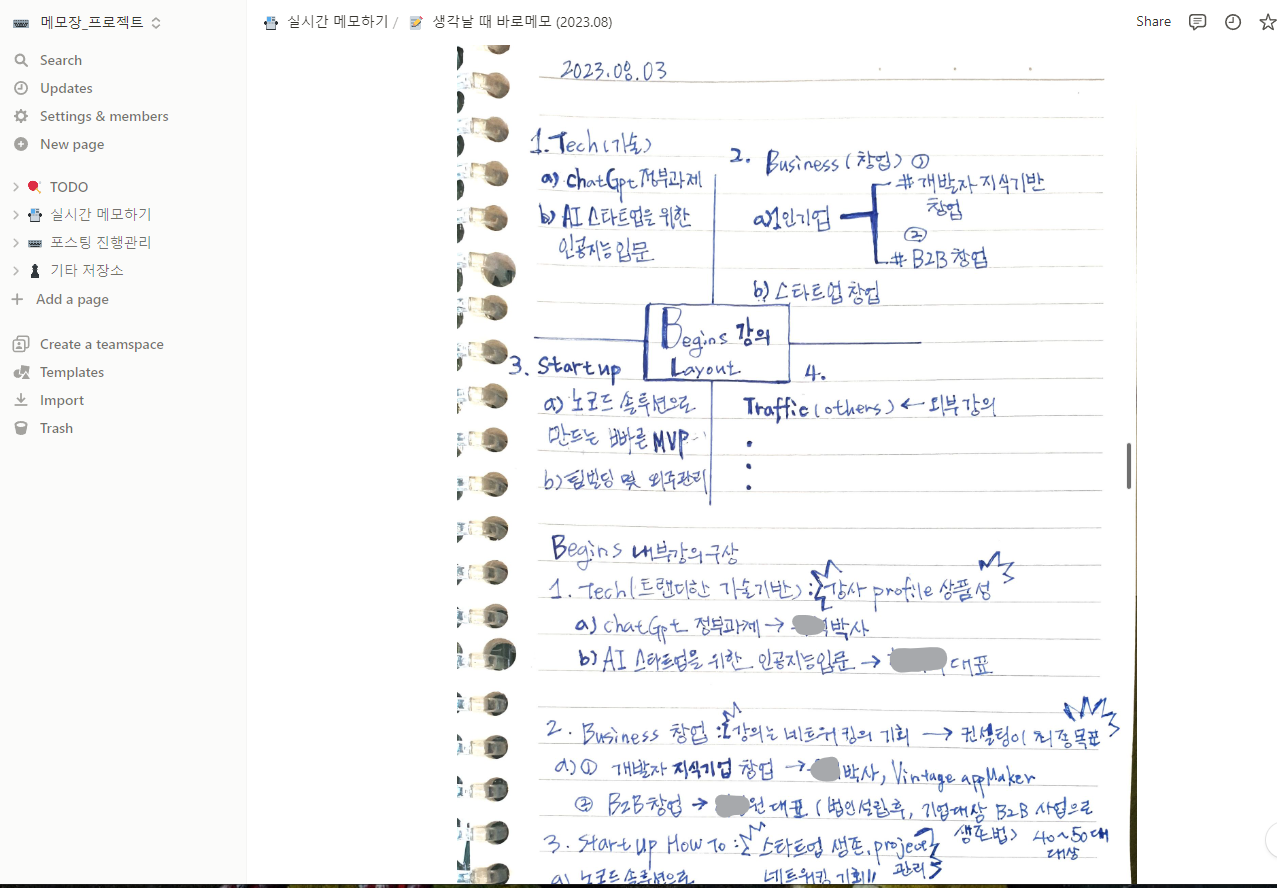 메모장_프로젝트
Search
Updates
Settings & members
New page
TODO
실시간 메모하기
포스팅 진행관리
기타 저장소
Add a page
Create a teamspace
Templates
Import
Trash
실시간 메모하기 / 생각날 때 바로메모 (2023.08)
Share
2023.08.03
1. Tech(기술)
a) chatGpt 정부과제
b) AI 스타트업을 위한
인공지능 입문
2. Business (창업) ①
a) 1인기업
# 개발자 지식기반
창업
②
# B2B 창업
b) 스타트업 창업
Begins 강의
Layout
3. Startup
a) 노코드 솔루션으로
만드는 빠른 MVP
b) 팀빌딩 및 외주관리
4.
Traffic (others) ← 외부강의
Begins 내부강의구상
1. Tech(트랜디한 기술기반) : 강사 profile 상품성
a) chatGpt 정부과제 → 박사
b) AI 스타트업을 위한 인공지능입문 → 대표
2. Business 창업 : 강의는 네트워킹의 기회 → 컨설팅이 최종목표
a) ① 개발자 지식기업 창업 → 박사, Vintage appMaker
② B2B창업 → 원 대표 (법인설립후, 기업대상 B2B 사업으로
생존법)
40~50대
대상
3. Startup How To : 스타트업 생존, project
관리
a) 노코드솔루션으로
네트워킹 기회!!